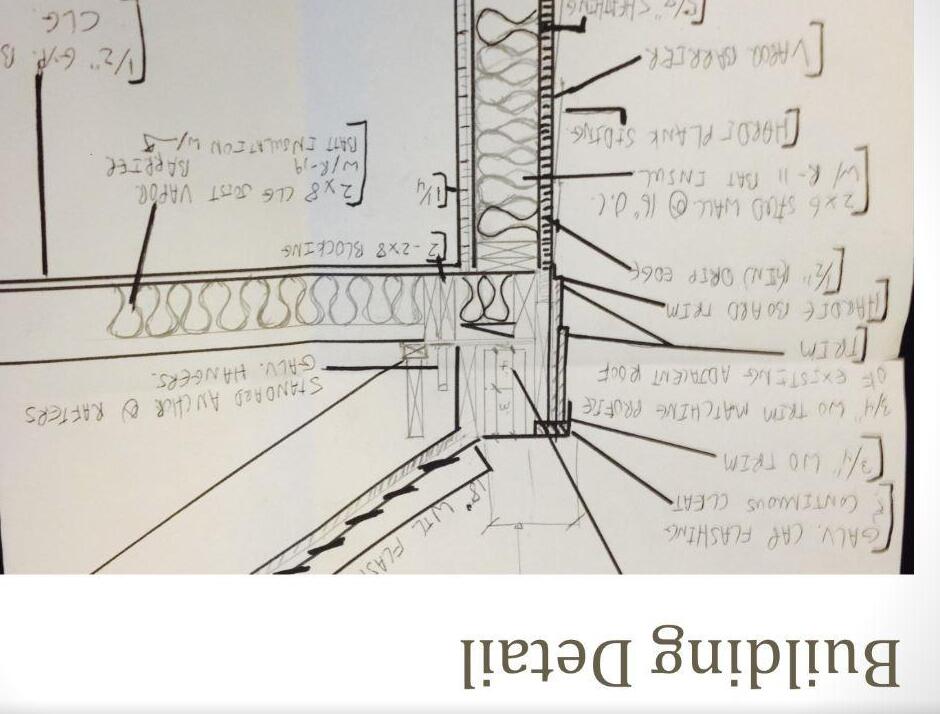 Building Detail
GALV. CAP FLASHING
& CONTINUOUS CLEAT
3/4" WD TRIM
3/4" WD TRIM MATCHING PROFILE
OF EXISTING ADJACENT ROOF
TRIM
HARDIE BOARD TRIM
(1/2" MIN) DRIP EDGE
2x6 STUD WALL @ 16" O.C.
W/ R-11 BAT INSUL
HARDI PLANK SIDING
VAPOR BARRIER
5/8" SHEATHING
FLAS
STANDARD ANCHOR @ RAFTERS
GALV. HANGERS.
2-2x8 BLOCKING
1 1/4
2x8 CLG JOIST VAPOR
W/R-19 BARRIER
BATT INSULATION W/
1/2" GYP. B
CLG